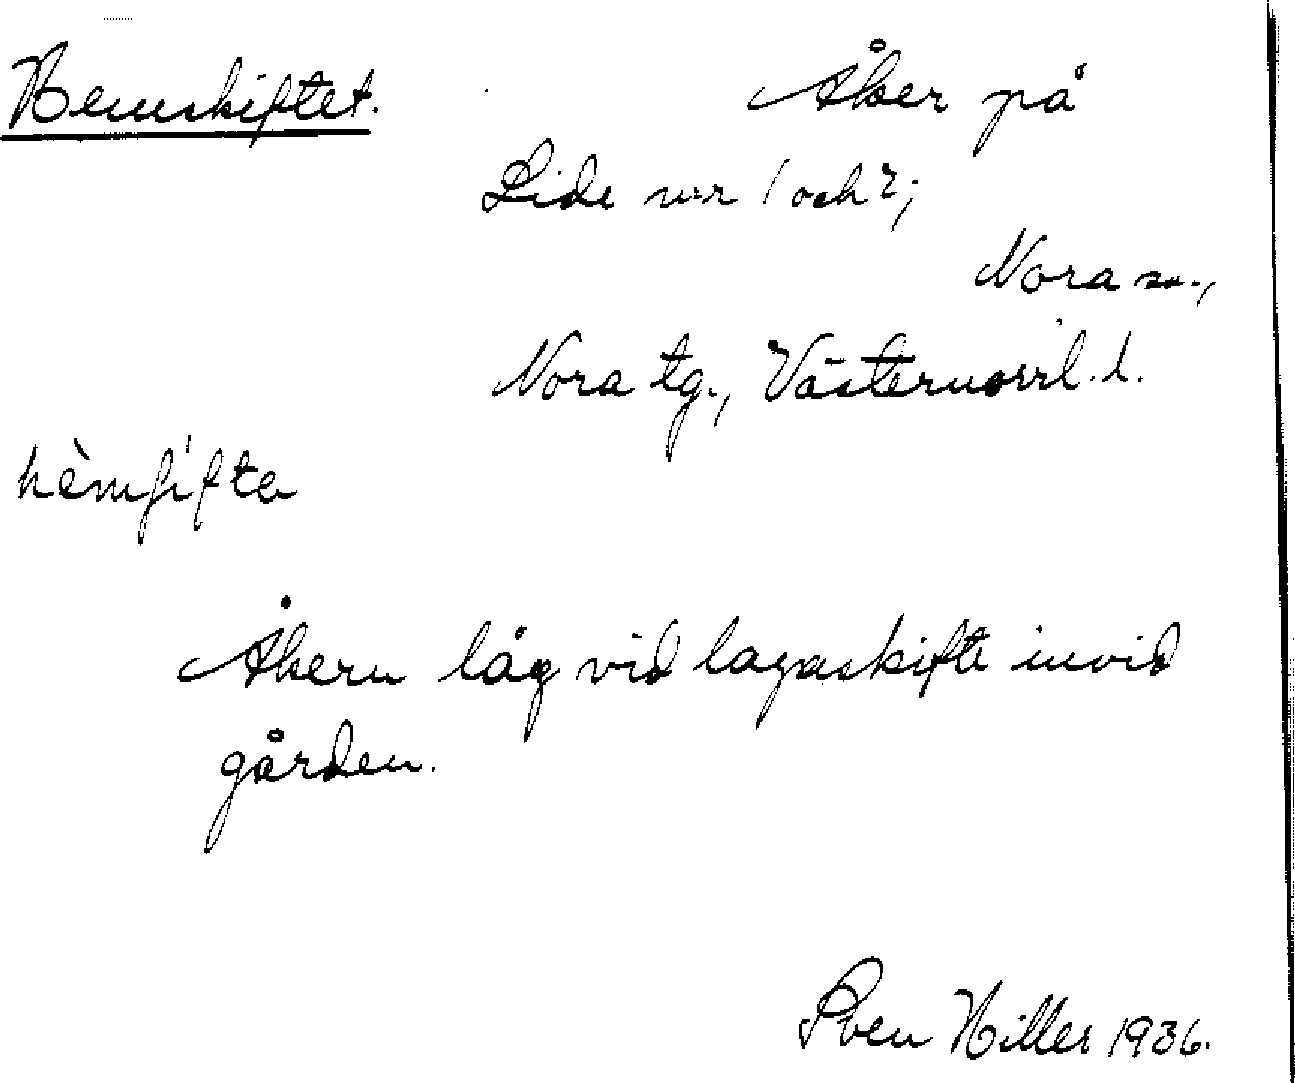 Hemskiftet. Åker på
Lide n:r 1 och 2;
Nora sn.,
Nora tg., Västernorrl. l.
hèmʃifta
Åkern låg vid lagaskifte invid
gården.
Sven Hiller 1936.